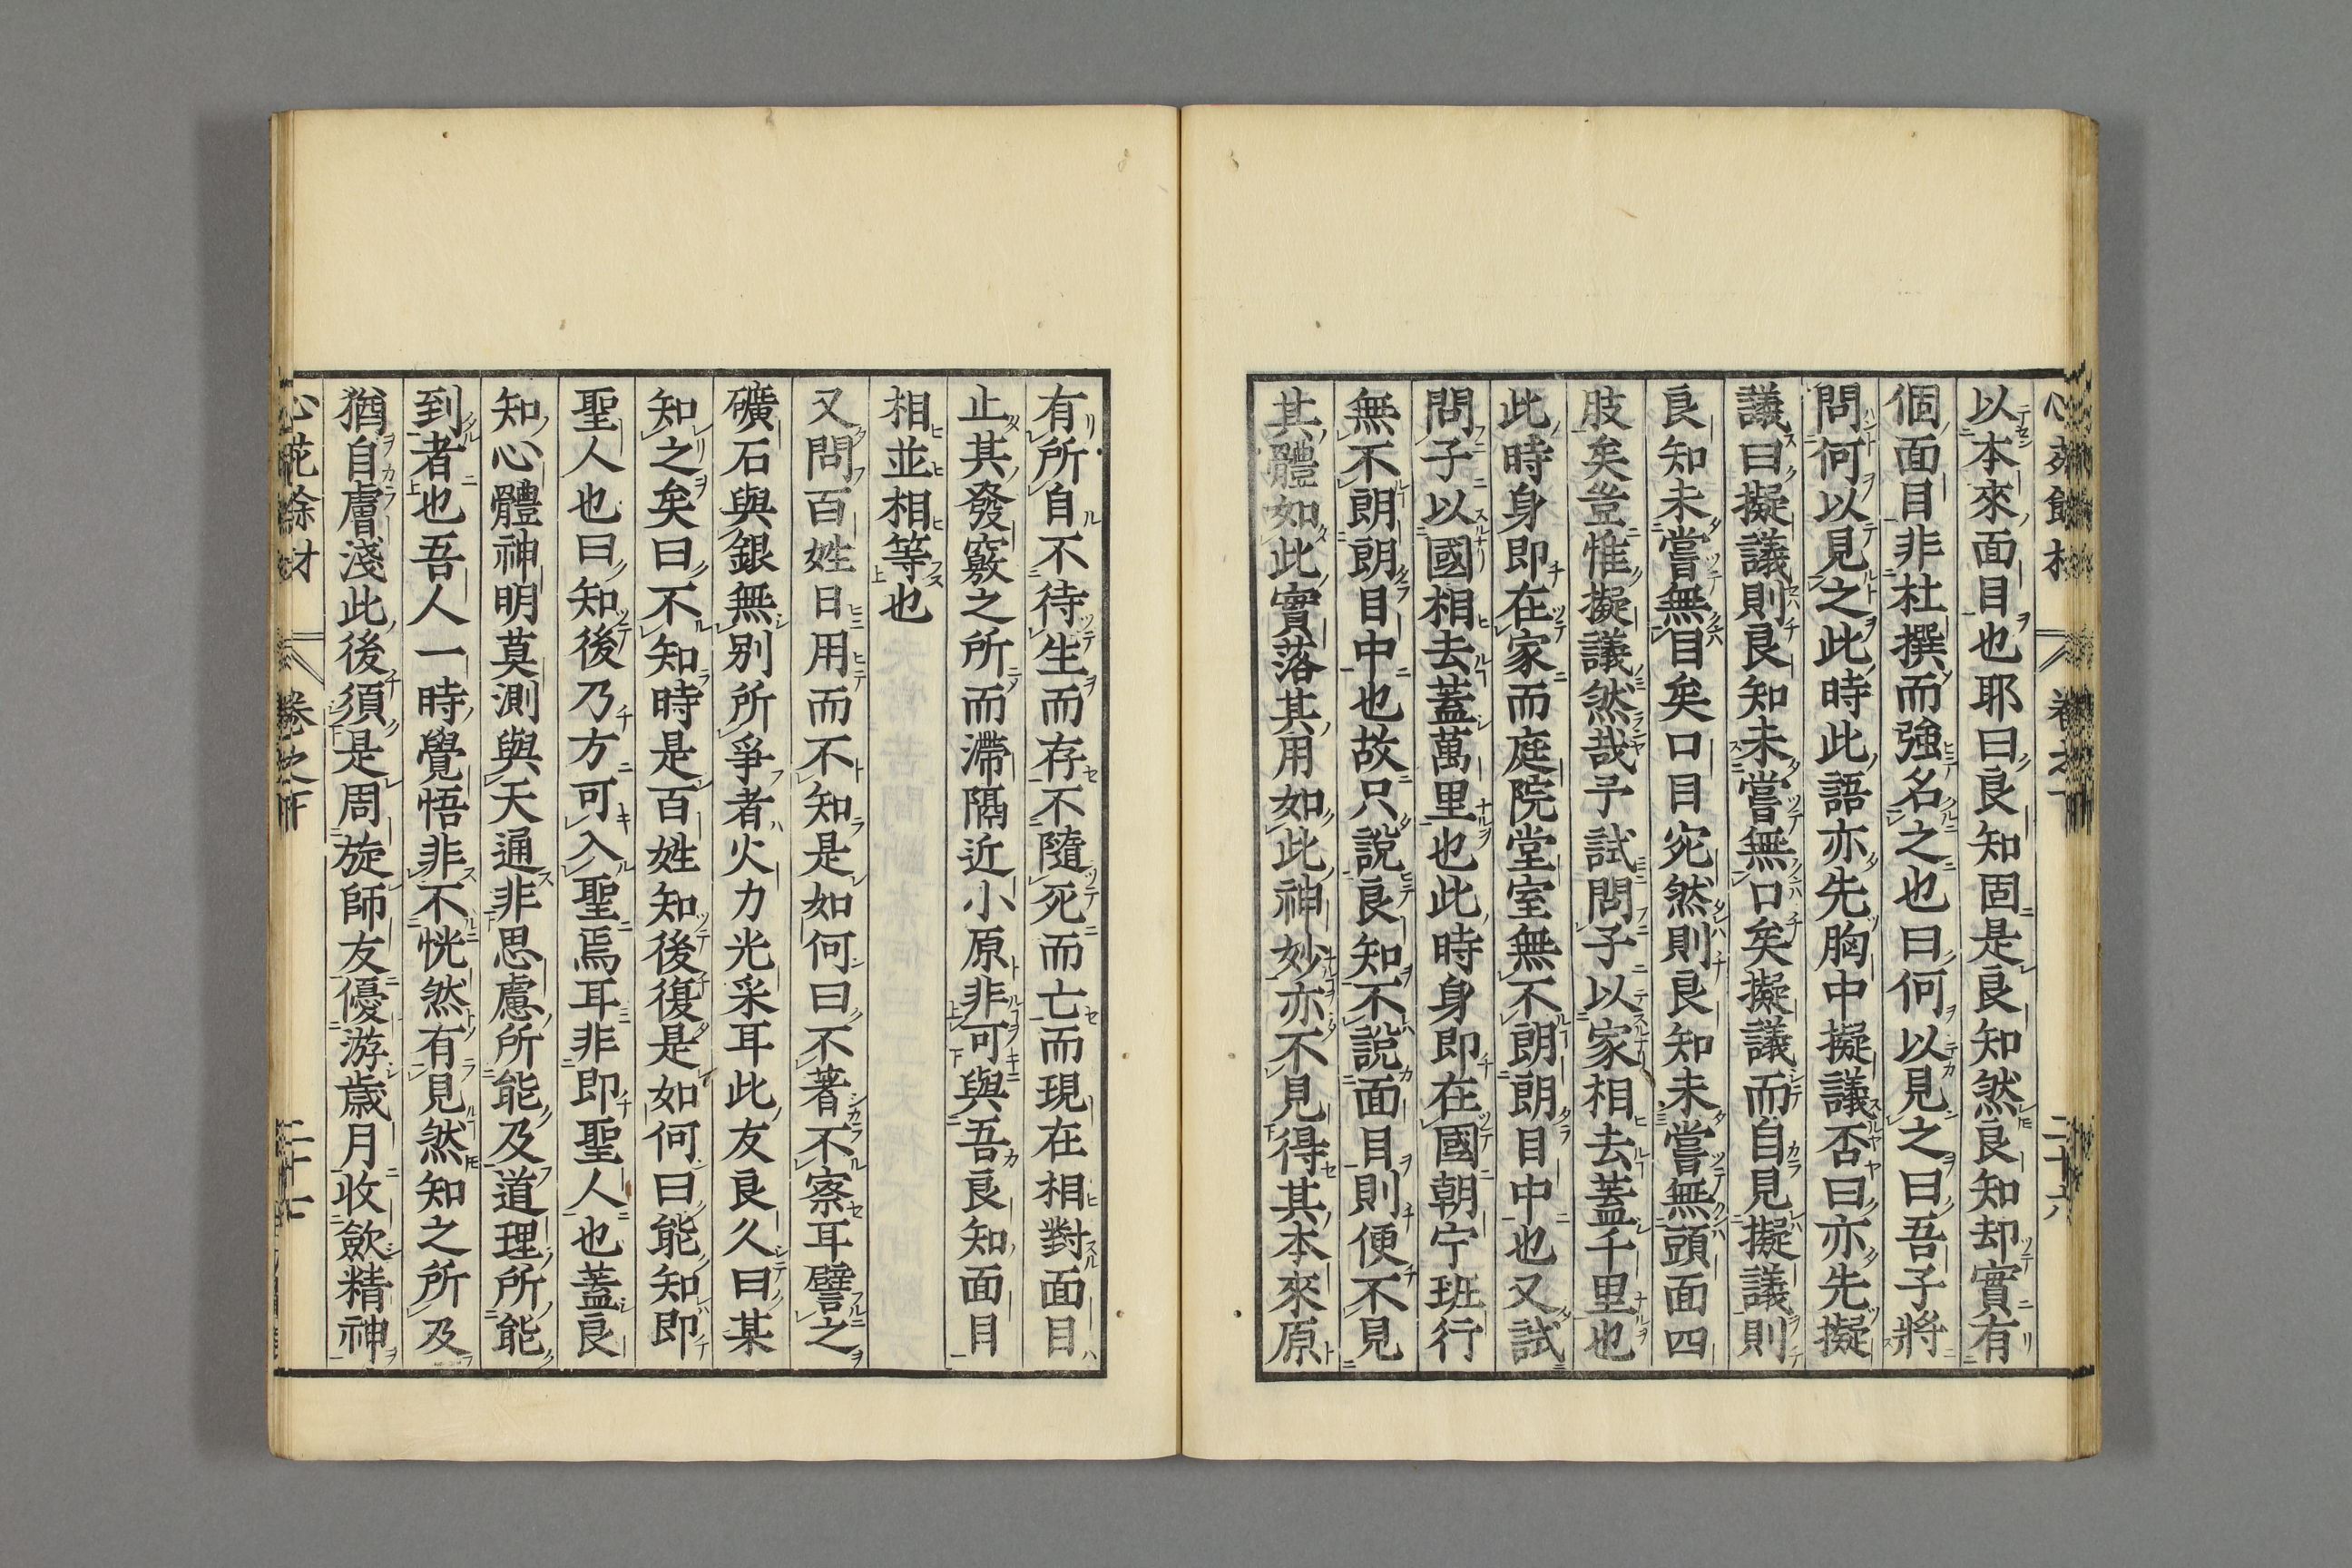 以本來面目也耶曰良知固是良知然良知却實有
個面目非杜撰而強名之也曰何以見之曰吾子將
問何以見之此時此語亦先胸中擬議否曰亦先擬
議曰擬議則良知未嘗無口矣擬議而自見擬議則
良知未嘗無目矣口目宛然則良知未嘗無頭面四
肢矣豈惟擬議然哉予試問子以家相去蓋千里也
此時身即在家而庭院堂室無不朗朗目中也又試
問子以國相去蓋萬里也此時身即在國朝宁班行
無不朗朗目中也故只說良知不說面目則便不見
其體如此實落其用如此神妙亦不見得其本來原
有所自不待生而存不隨死而亡而現在相對面目
止其發竅之所而滯隔近小原非可與吾良知面目
相並相等也
又問百姓日用而不知是如何曰不著不察耳譬之
礦石與銀無別所爭者火力光采耳此友良久曰某
知之矣曰不知時是百姓知後復是如何曰能知即
聖人也曰知後乃方可入聖焉耳非即聖人也蓋良
知心體神明莫測與天通非思慮所能及道理所能
到者也吾人一時覺悟非不恍然有見然知之所及
猶自膚淺此後須是周旋師友優游歲月收歛精神
心花餘材 卷之下 二十七